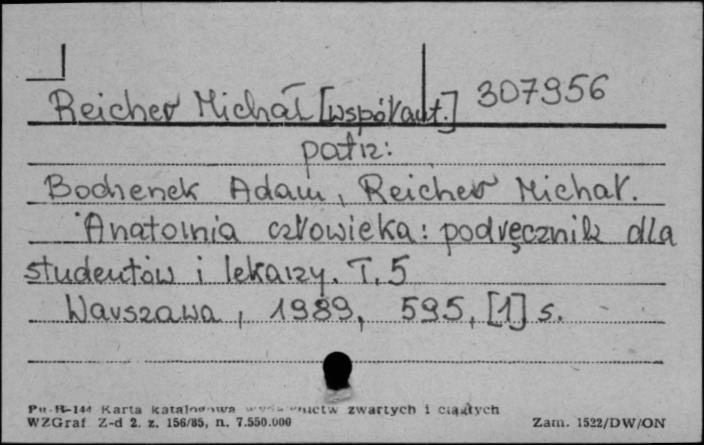 Reicher Michał [współaut.] 307956
patrz:
Bochenek Adam, Reicher Michał.
Anatomia człowieka: podręcznik dla
studentów i lekarzy. T. 5
Warszawa, 1989, 595, [1] s.
Pu-B-144 Karta katalogowa wydawnictw zwartych i ciągłych
WZGraf Z-d 2. z. 156/85, n. 7.550.000 Zam. 1522/DW/ON